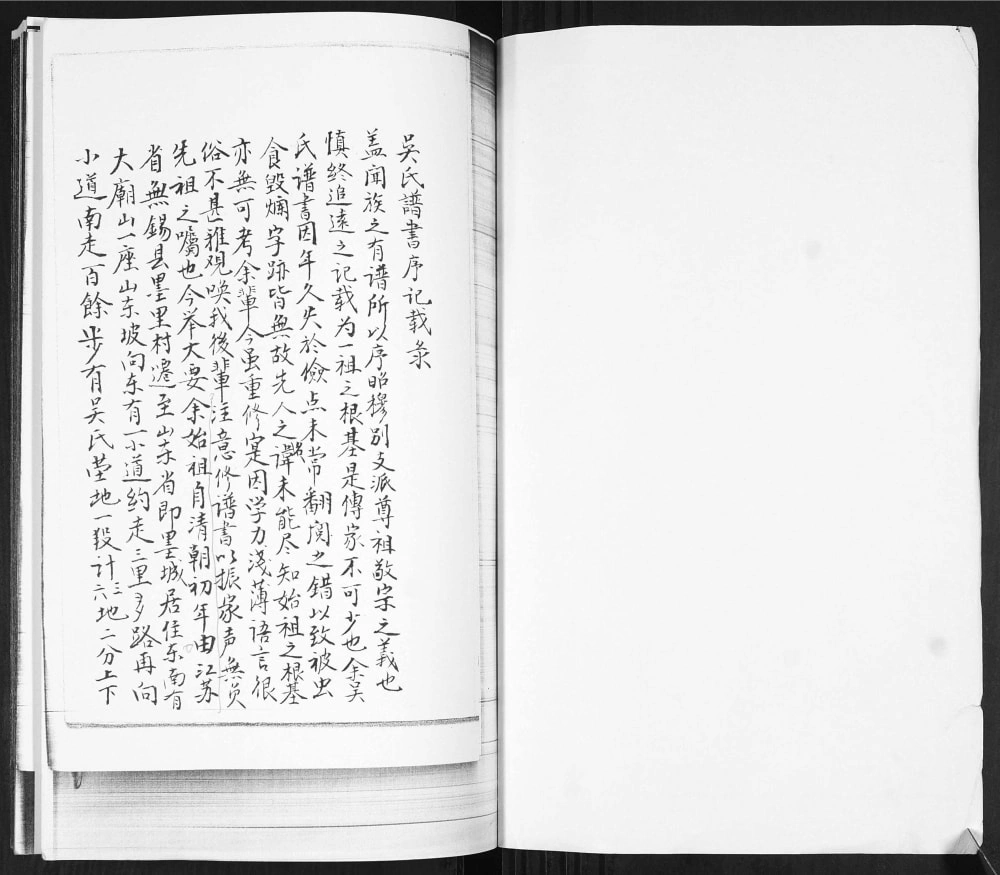 吴氏譜書序记载录
盖闻族之有谱所以序昭穆别支派尊祖敬宗之義也
慎终追远之记载为一祖之根基是傳家不可少也余吴
氏谱書因年久失於儉点未常翻阅之错以致被虫
食毁爛字跡皆無故先人之諱未能尽知始祖之根基
亦無可考余輩今虽重修寔因学力淺薄语言很
俗不甚雅观唤我後輩注意修谱書以振家声無负
先祖之囑也今举大要余始祖自清朝初年由江苏
省無錫县墨里村遷至山东省即墨城居住东南有
大廟山一座山东坡向东有一小道约走三里多路再向
小道南走百餘步有吴氏茔地一段计三六地二分上下